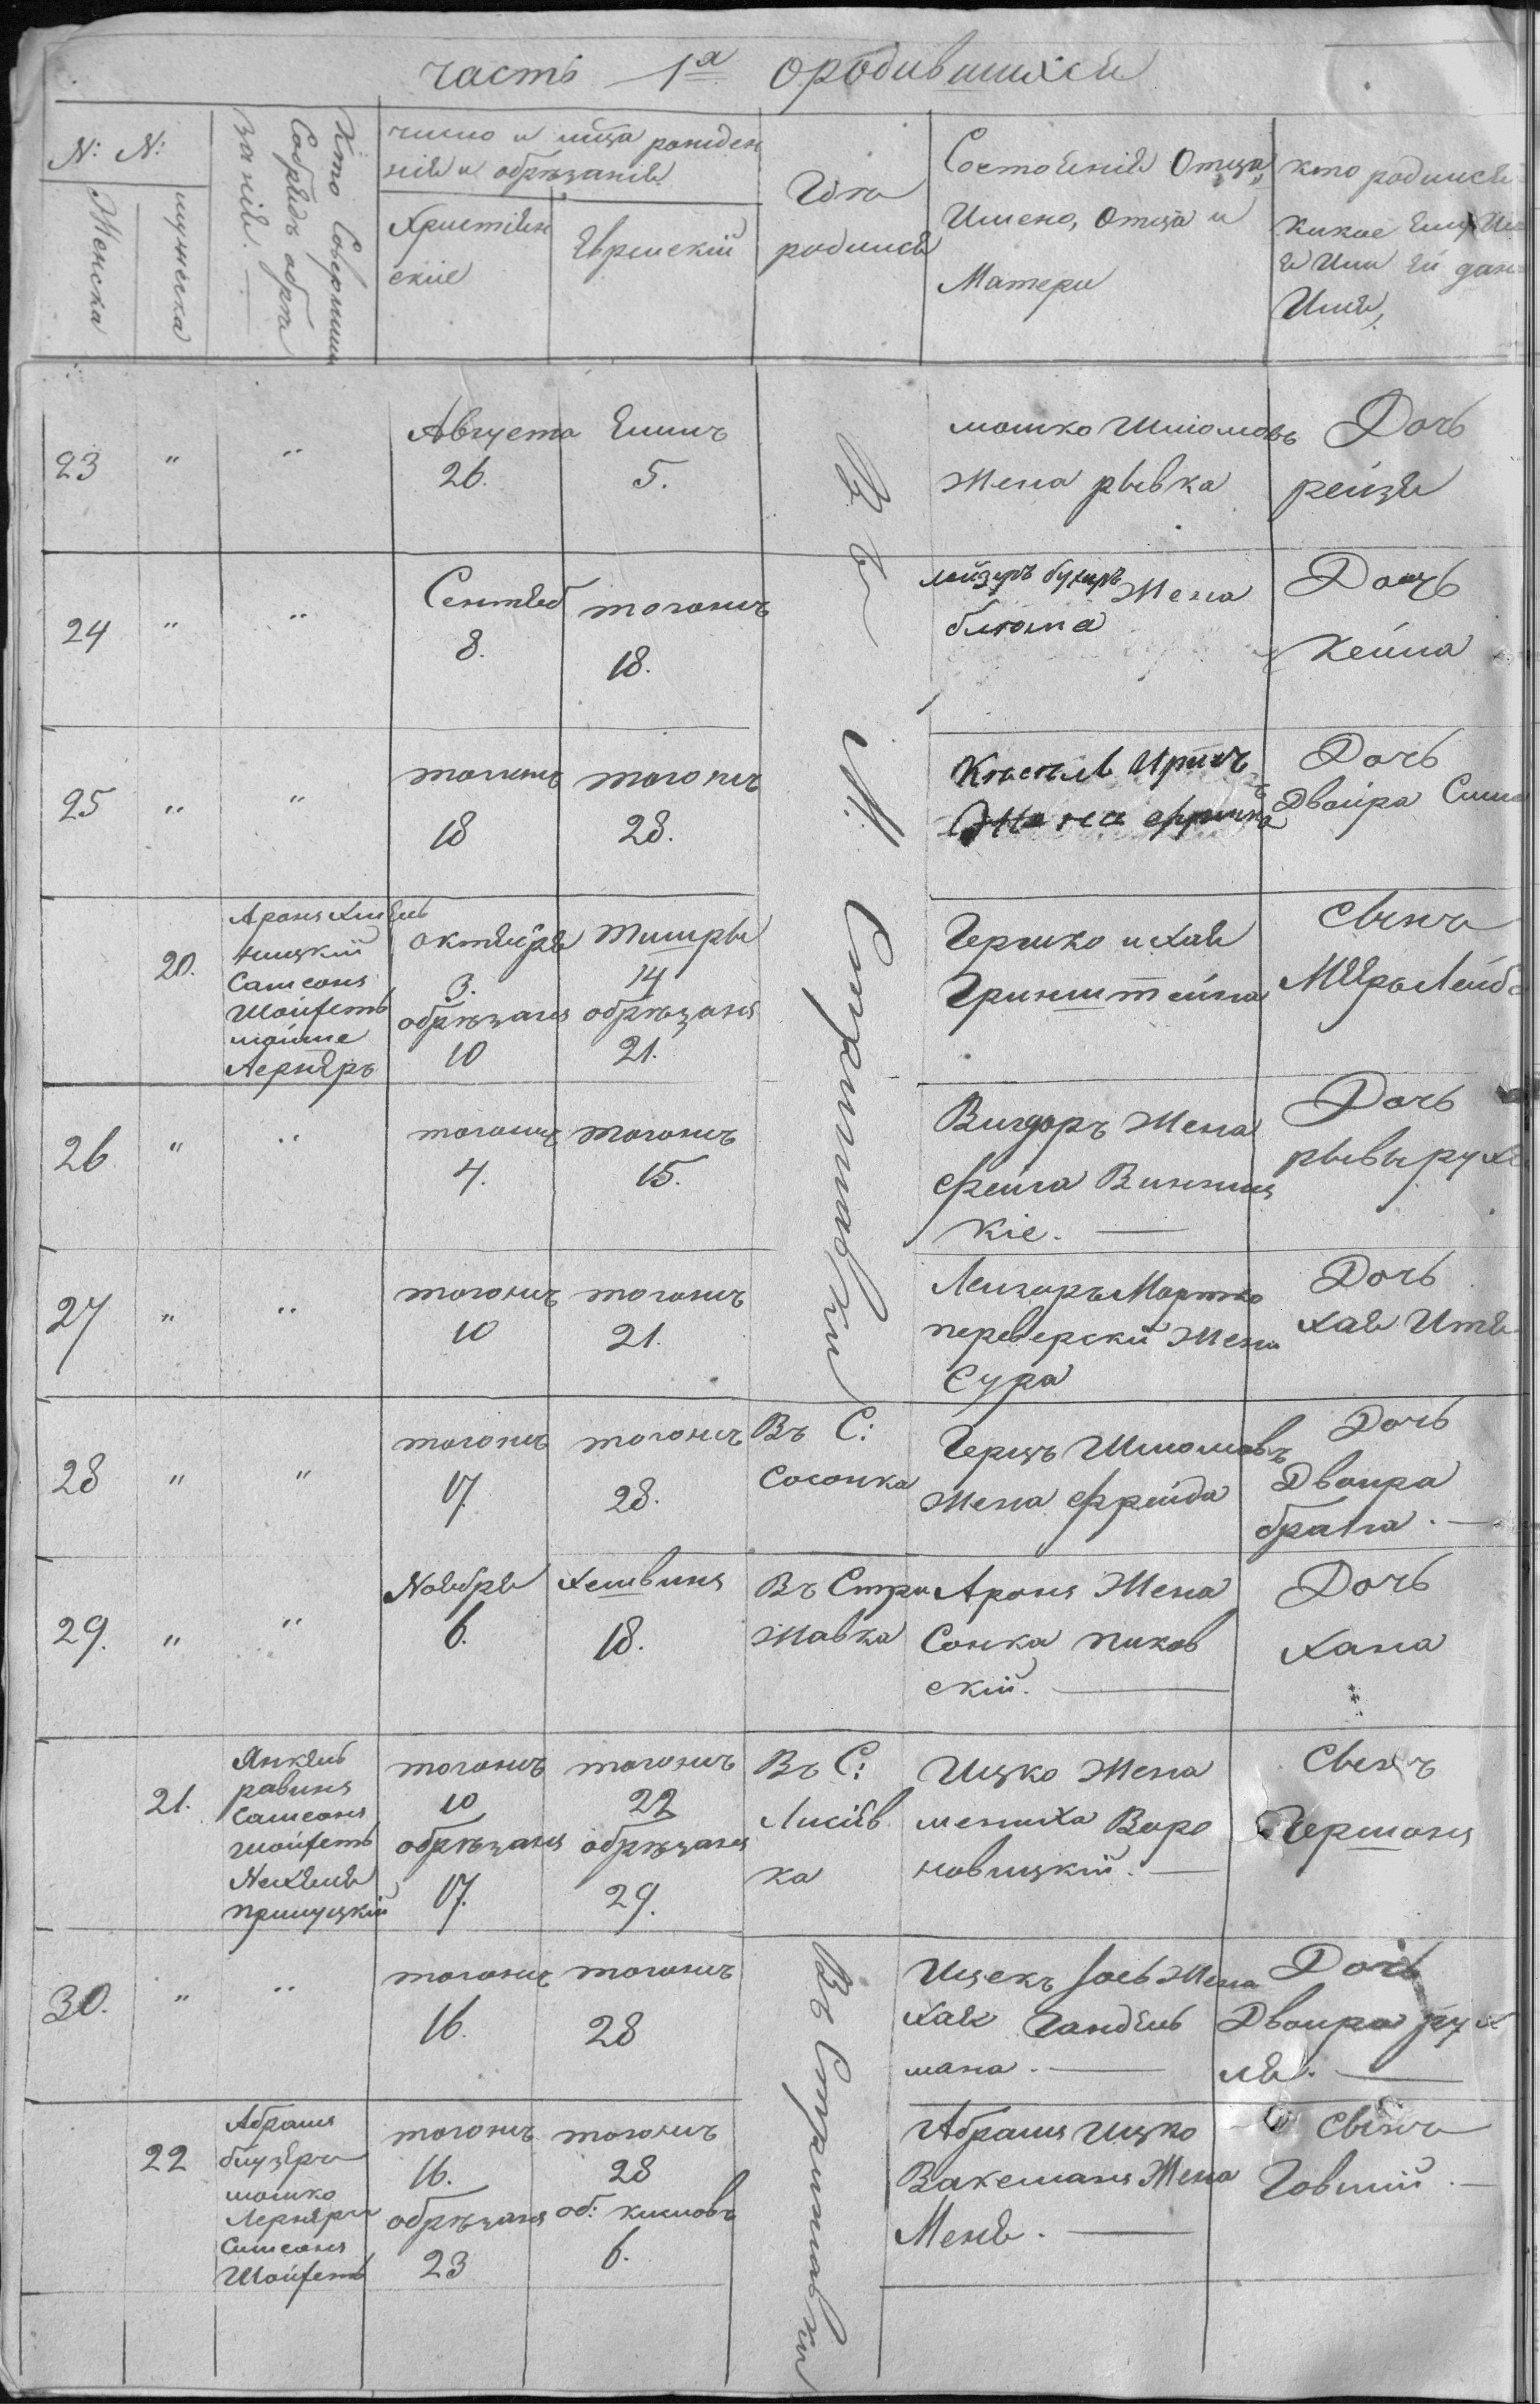 часть 1я ородившихся
N: N:
Женска
мужеска
Кто Совершил
Собрядъ обрѣ
занія.
число и мѣца рожден
нія и обрѣзанія
Христіян
скіе
Еврейскій
Гдѣ
родился
Состояніе Отца,
Имено, Отца и
Матери
кто родился
какое Ему Им
я или Ей дан
Имя,
23 " "
Августа
26.
Елулъ
5.
Въ М. Стрижавки
мошко Шліомовъ
жена рывка
Дочь
рейзя
24 " "
Сентяб
8.
тогожъ
18.
лейзеръ Жена
блюма
Дочь
Хейна
25 " "
тогожъ
18
тогожъ
28.
Жена фримка
Дочь
Двойра Сима
20.
ницкій
Самсонъ
Шойхетъ
Лернеръ
октября
3.
обрѣзанъ
10
тишры
14
обрѣзанъ
21.
Гершко и Хая
Гринштейна
Сынъ
Меръ Лейб
26 " "
тогожъ
4.
тогожъ
15.
Вигдоръ Жена
Фейга Винниц
кіе.
Дочь
рывырухе
27 " "
тогожъ
10
тогожъ
21.
Лейзоръ Мортко
Жена
Сура
Дочь
Хая Итя
28 " "
тогожъ
17.
тогожъ
28.
Въ С:
Сосонка
Герцъ Шліомовъ
жена Фрейда
Дочь
Двойра
брана.
29. " "
Ноября
6.
Хешвина
18.
Въ Стри
жавка
Аронъ Жена
Сонка пиков
скій.
Дочь
Хана
21.
Янкель
равинъ
Самсонъ
шойхетъ
прилуцкій
тогожъ
10
обрѣзанъ
17.
тогожъ
22
обрѣзанъ
29.
Въ С:
Лисіев
ка
Ицко Жена
мениха Воро
новицкій.
Сынъ
Гершонъ
30. " "
тогожъ
16.
тогожъ
28
Въ Стрижавки
Ицекъ Іось Жена
Хая Гандель
мана.
Дочь
Двойра рух
ля.
22
Абрамъ
мошко
Лернеръ
Самсонъ
Шойхетъ
тогожъ
16.
обрѣзанъ
23
тогожъ
28
об: кисловъ
6.
Абрамъ Ицко
Ваксманъ Жена
Меня.
Сынъ
Говшій.